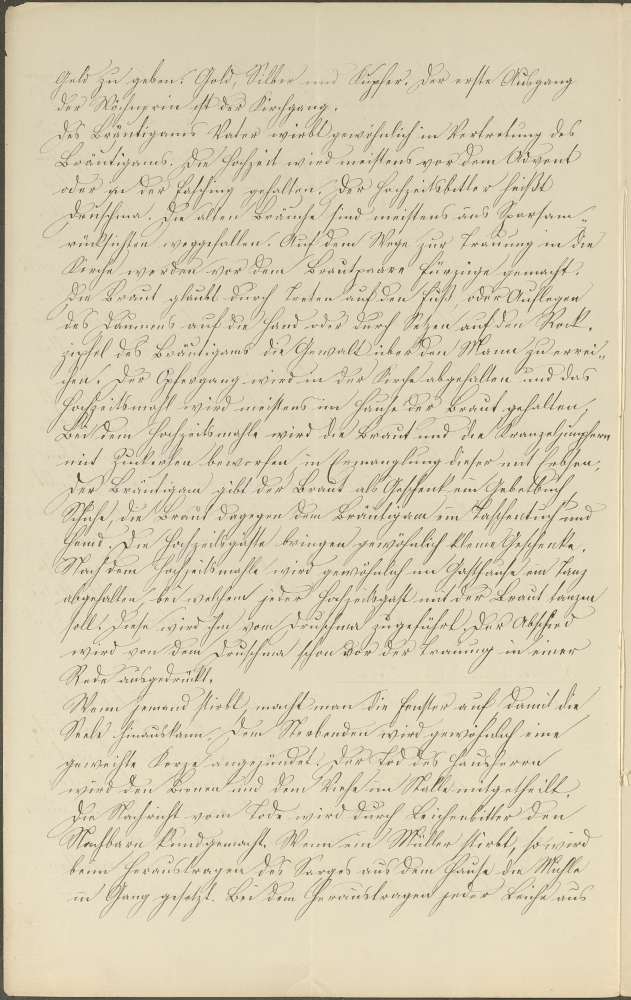 Geld zu geben: Gold, Silber und Kupfer. Der erste Ausgang
der Wöchnerin ist der Kirchgang.
Des Bräutigams Vater wirbt gewöhnlich in Vertretung des
Bräutigams. Die Hochzeit wird meistens vor dem Advent
oder in der Fasching gehalten. Der Hochzeitsbitter heißt
Druschma. Die alten Bräuche sind meistens aus Sparsam-
rücksichten weggefallen. Auf dem Wege zur Trauung in die
Kirche werden vor dem Brautpaare Fürzüge gemacht.
Die Braut glaubt durch Treten auf den Fuß, oder Auflegen
des Daumens auf die Hand oder durch Setzen auf den Rock-
zipfel des Bräutigams die Gewalt über den Mann zu errei-
chen. Der Opfergang wird in der Kirche abgehalten und das
Hochzeitsmahl wird meistens im Hause der Braut gehalten,
Bei dem Hochzeitsmahle wird die Braut und die Kranzeljungfern
mit Zuckerln beworfen, in Ermanglung dieser mit Erbsen,
Der Bräutigam gibt der Braut als Geschenk ein Gebetbuch,
Schuhe, die Braut dagegen dem Bräutigam ein Taschentuch und
Hemd. Die Hochzeitsgäste bringen gewöhnlich kleine Geschenke.
Nach dem Hochzeitsmahle wird gewöhnlich im Gasthause ein Tanz
abgehalten, bei welchem jeder Hochzeitsgast mit der Braut tanzen
soll. Diese wird ihm vom Druschma zugeführt. Der Abschied
wird von dem Druschma schon vor der Trauung in einer
Rede ausgedrückt.
Wenn jemand stirbt, macht man die Fenster auf damit die
Seele hinauskann. Dem Sterbenden wird gewöhnlich eine
geweihte Kerze angezündet. Der Tod des Hausherrn
wird den Bienen und dem Viehe im Stalle mitgetheilt.
Die Nachricht vom Tode wird durch Leichenbitter den
Nachbarn kundgemacht. Wenn ein Müller stirbt, so wird
beim Heraustragen des Sarges aus dem Hause die Mühle
in Gang gesetzt. Bei dem Heraustragen jeder Leiche aus